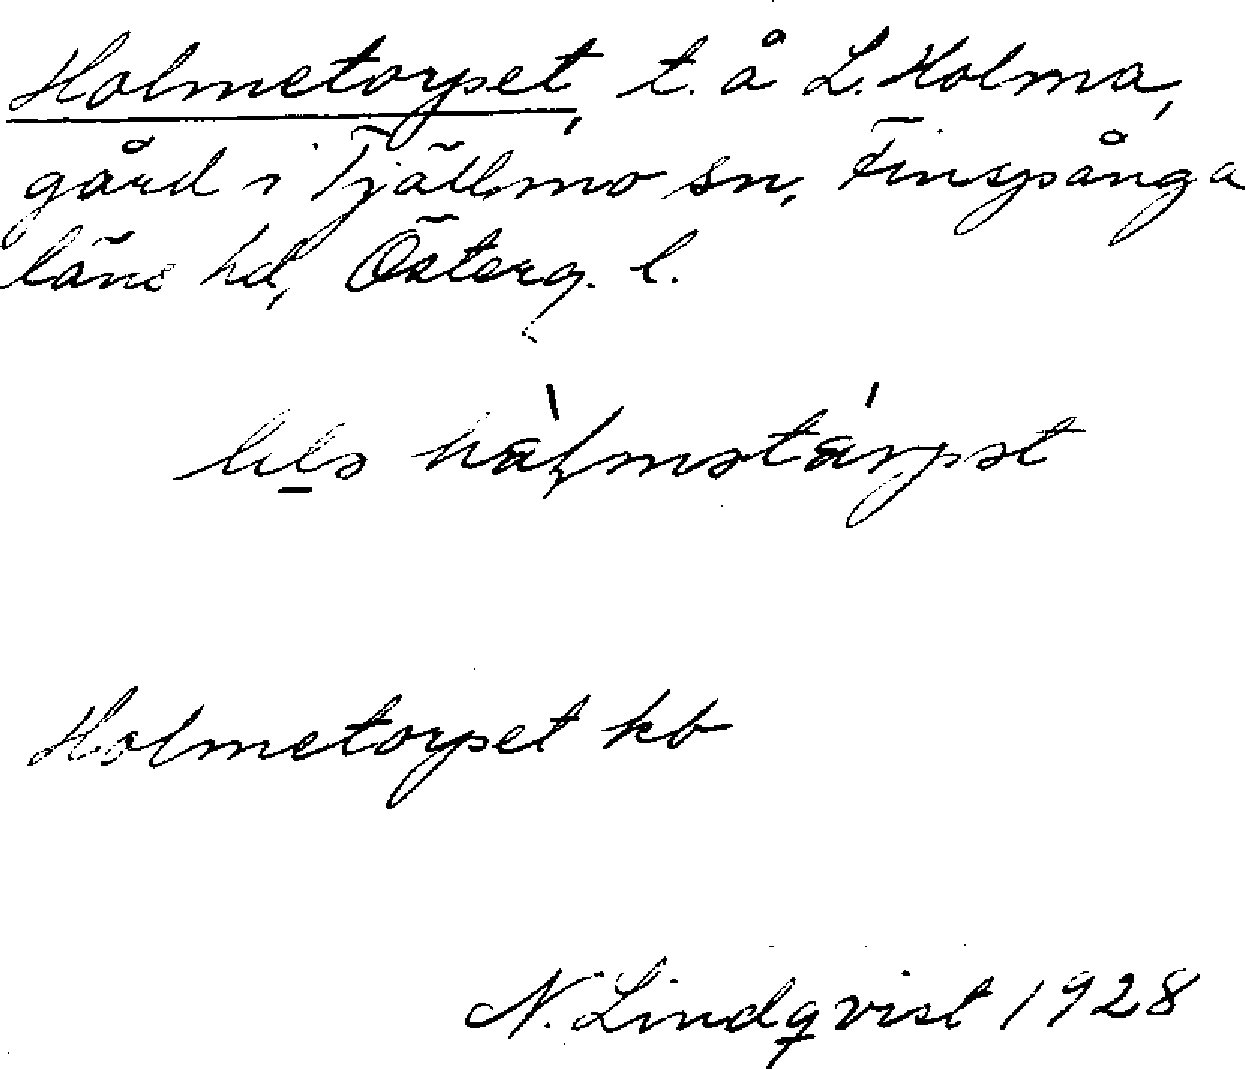 Holmetorpet, t. å L. Holma,
gård i Tjällmo sn, Finspånga
läns hd, Österg. l.
Holmetorpet kb
N. Lindqvist 1928